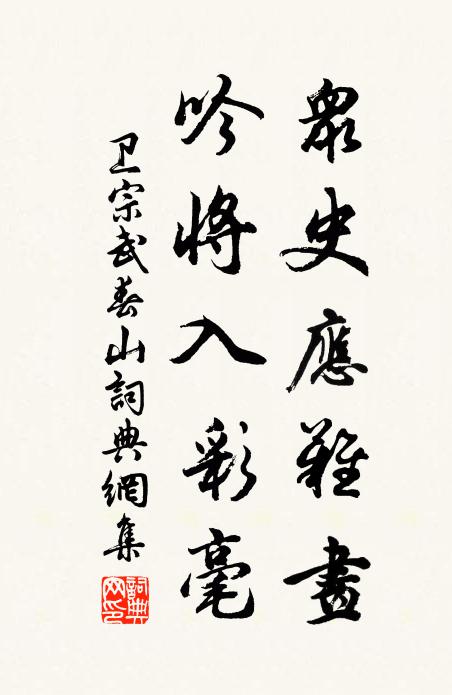 衆史應難畫
吟將入彩毫
卫宗武春山詞典網集
詞典网印